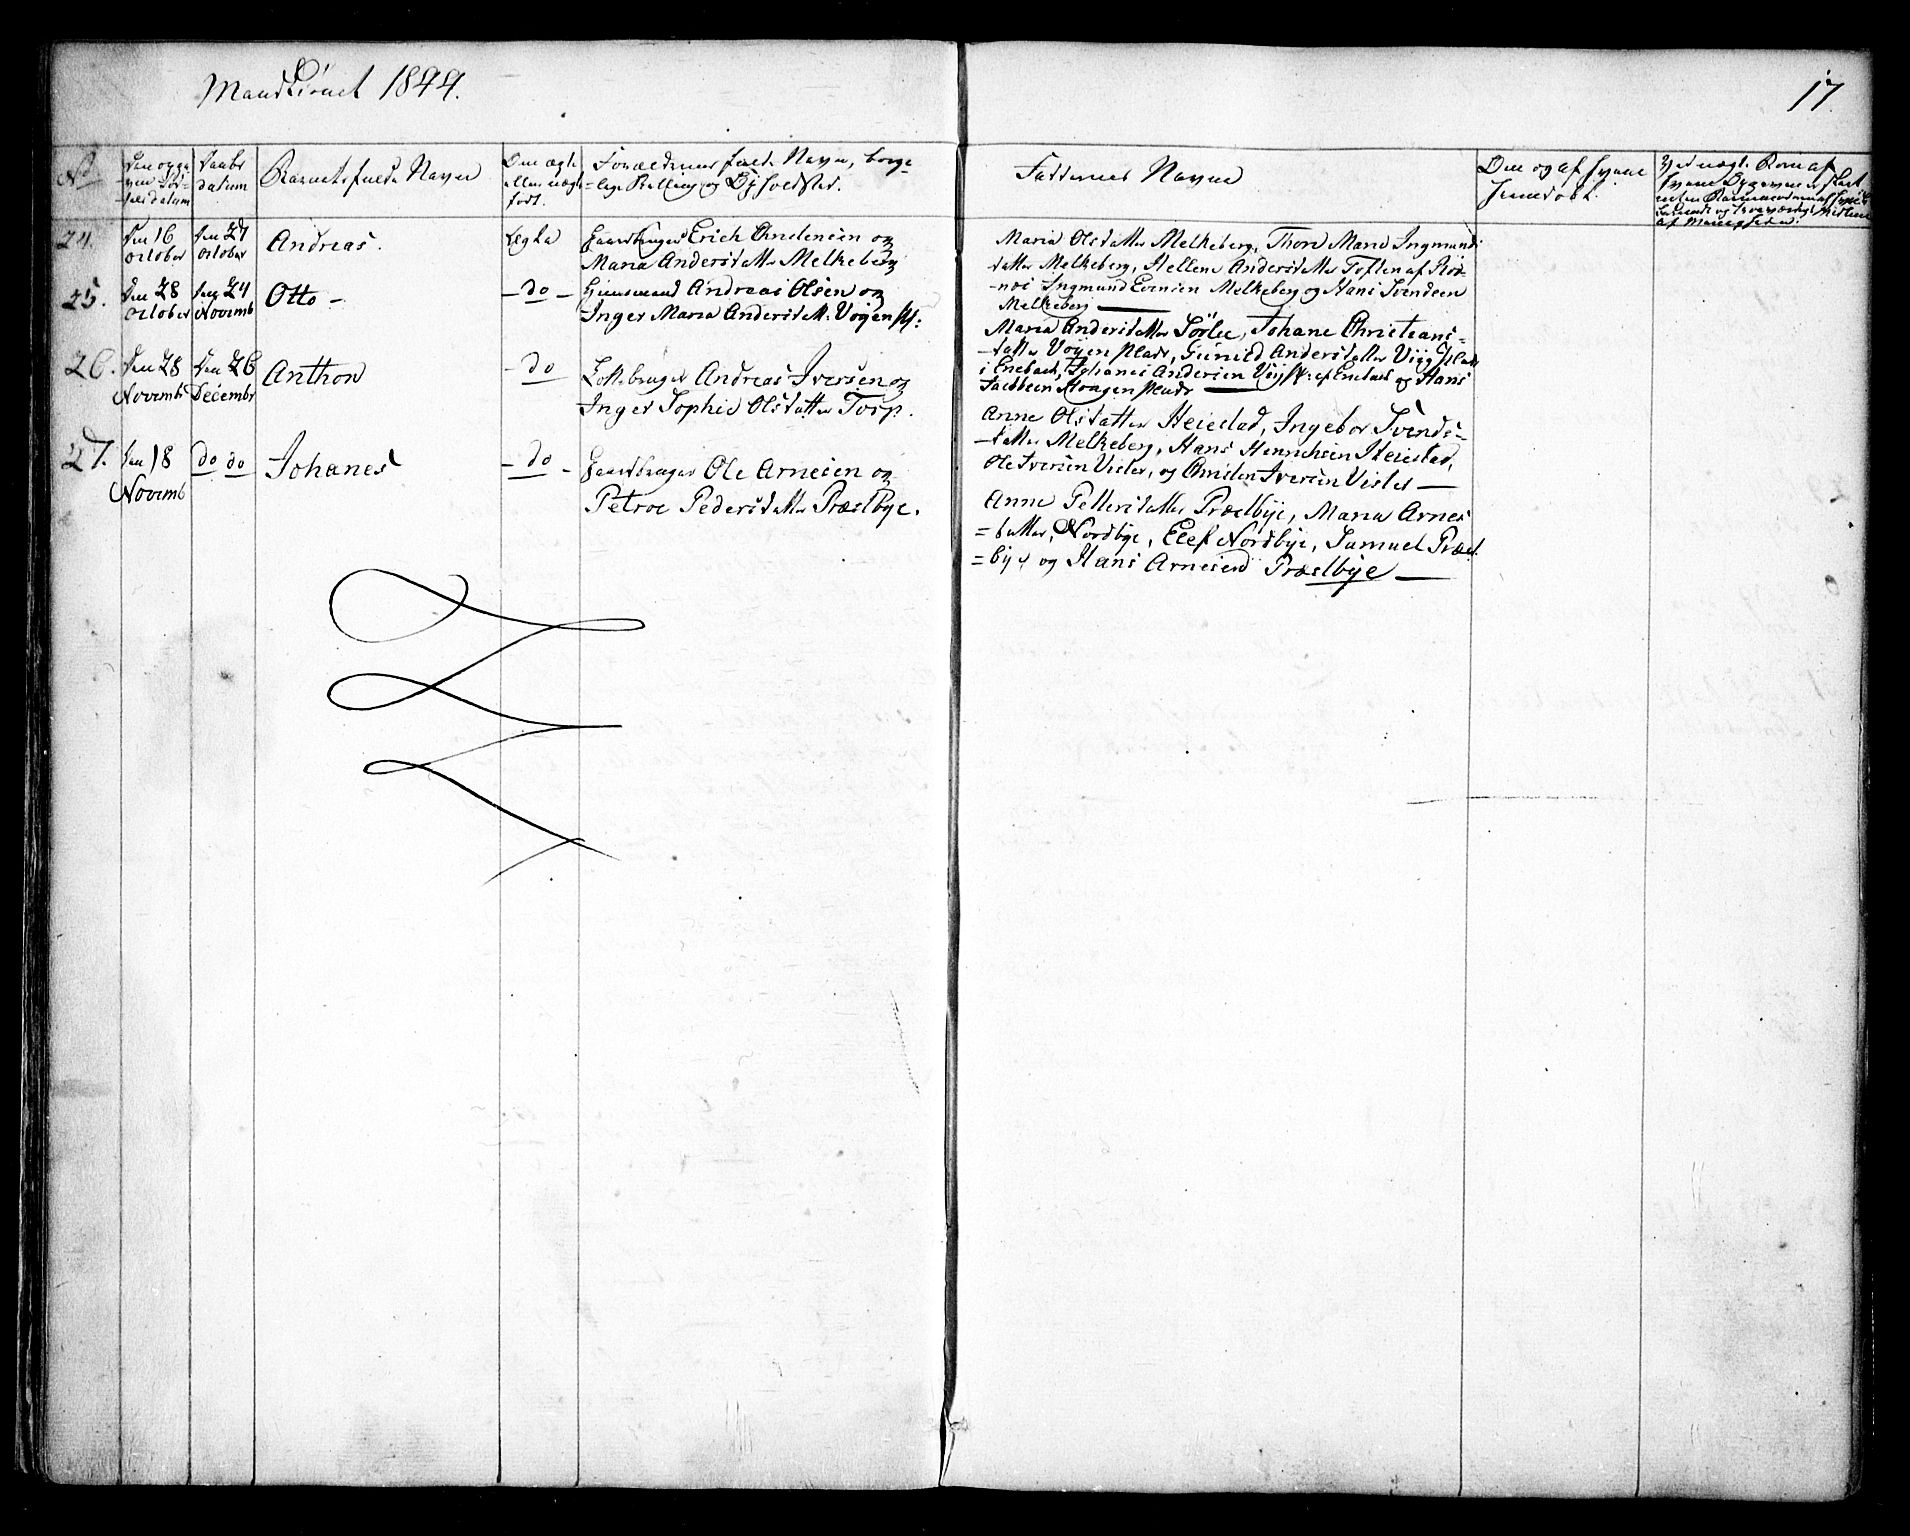 Mandkiönet 1844.
17.
No
Den opgivne Födselsdatum
Daabs datum
Barnets fulde Navn
Om ægte eller uægte födt.
Forældrenes fulde Navne, borge-
=lige Stilling og Opholdsted.
Faddernes Navne
Om og af hvem
hjemdöbt.
24.
Den 16
October
Den 27
October
Andreas.
Ægte
Gaardbruger Erich Andersen og
Maria Andersdatter Melkeberg
Maria Olsdatter Melkeberg, Thore Marie Ingmunds
datter Melkeberg, Hellene Andersdatter Toften af Röd-
-næs Ingmund Evensen Melkeberg og Hans Svendsen
Melkeberg
25.
Den 28
October
Den 24
Novemb
Otto -
- do -
Huusmand Andreas Olsen og
Inger Maria Andersdatt: Vöyen Pl:
Maria Andersdatter Sörlie, Johane Christians-
-datter Vöyen Plads, Gunild Andersdatter Viig Plads
i Enebach, Johanes Andersen Viig Pl: af Enebach og Hans
Jacobsen Haagen Plads
26.
Den 28
Novemb
Den 26
Decembr
Anthon
- do
Lottebruger Andreas Iversen og
Inger Sophie Olsdatter Torp.
Anne Olsdatter Heiestad, Ingebor Svends-
-datter Melkeberg, Hans Henrichsen Heiestad,
Ole Iversen Visler, og Christen Iversen Visler —
27.
Den 18
Novemb
do do
Johanes
- do -
Gaardbruger Ole Arnesen og
Petroe Pedersdatter Præstbye.
Anne Pettersdatter Præstbye, Maria Arnes
=datter, Nordbye, Elef Nordbye, Samuel Præst
=bye og Hans Arnesen Præstbye —